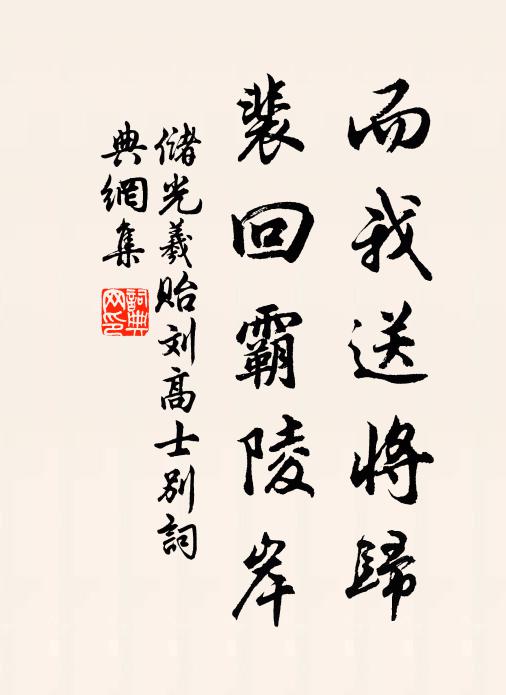 而我送将歸
裴回霸陵岸
儲光羲贻刘高士别詞
典網集
詞典网印